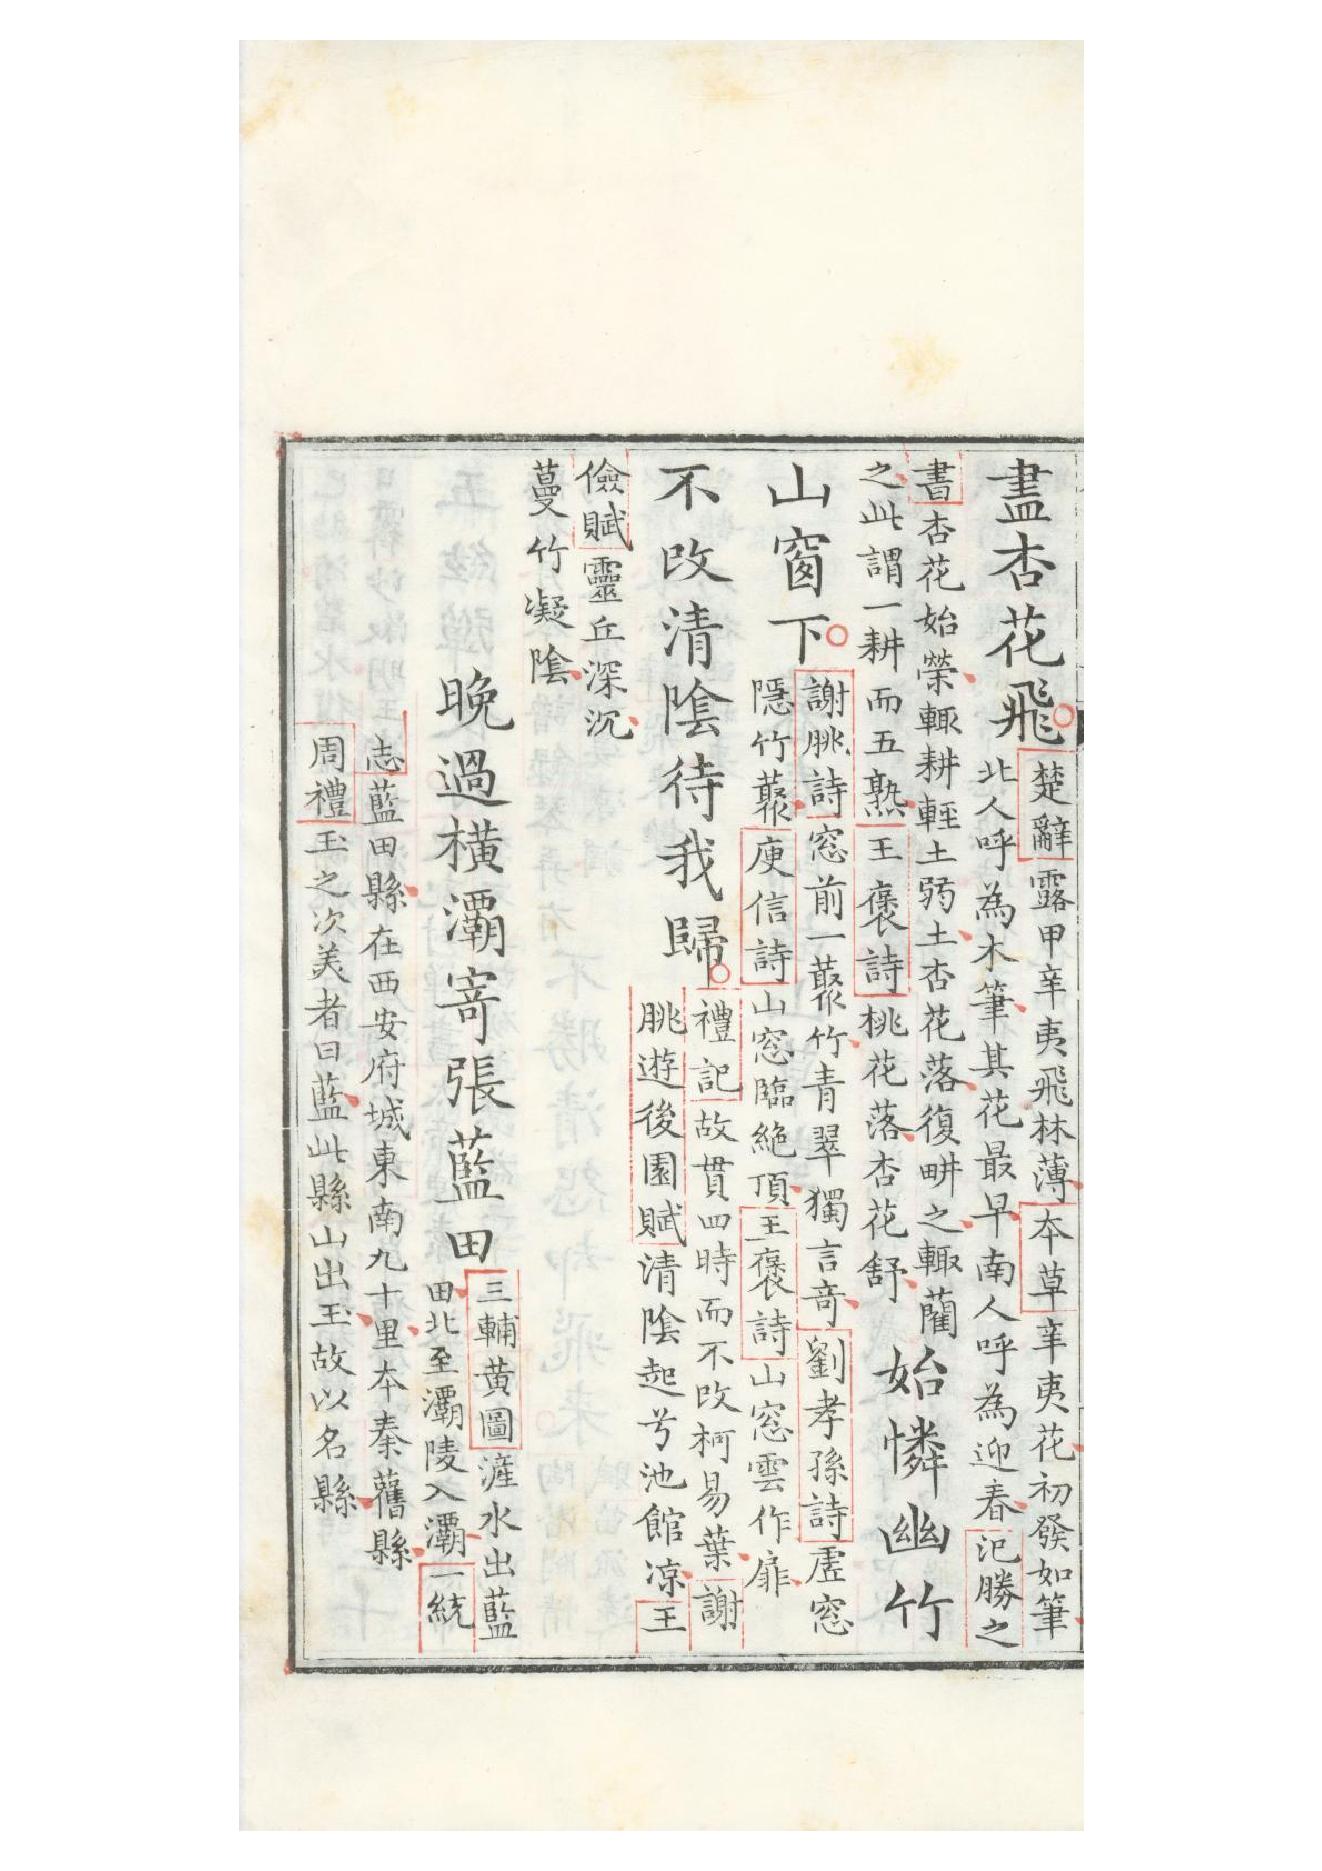 盡杏花飛
楚辭露甲辛夷飛林薄本草辛夷花初發如筆
北人呼為木筆其花最早南人呼為迎春氾勝之
書杏花始榮輙耕輕土弱土杏花落復畊之輙藺
之此謂一耕而五熟王褒詩桃花落杏花舒
始憐幽竹
山窗下
謝朓詩窓前一藂竹青翠獨言竒劉孝孫詩虛窓
隱竹藂庾信詩山窓臨絶頂王褒詩山窓雲作扉
不改清陰待我歸
禮記故貫四時而不改柯易葉謝
朓遊後園賦清陰起兮池館凉王
儉賦靈丘深沉
蔓竹凝陰
晚過橫灞寄張藍田
三輔黄圖滻水出藍
田北至灞陵入灞一統
志藍田縣在西安府城東南九十里本秦舊縣
周禮玉之次美者曰藍此縣山出玉故以名縣